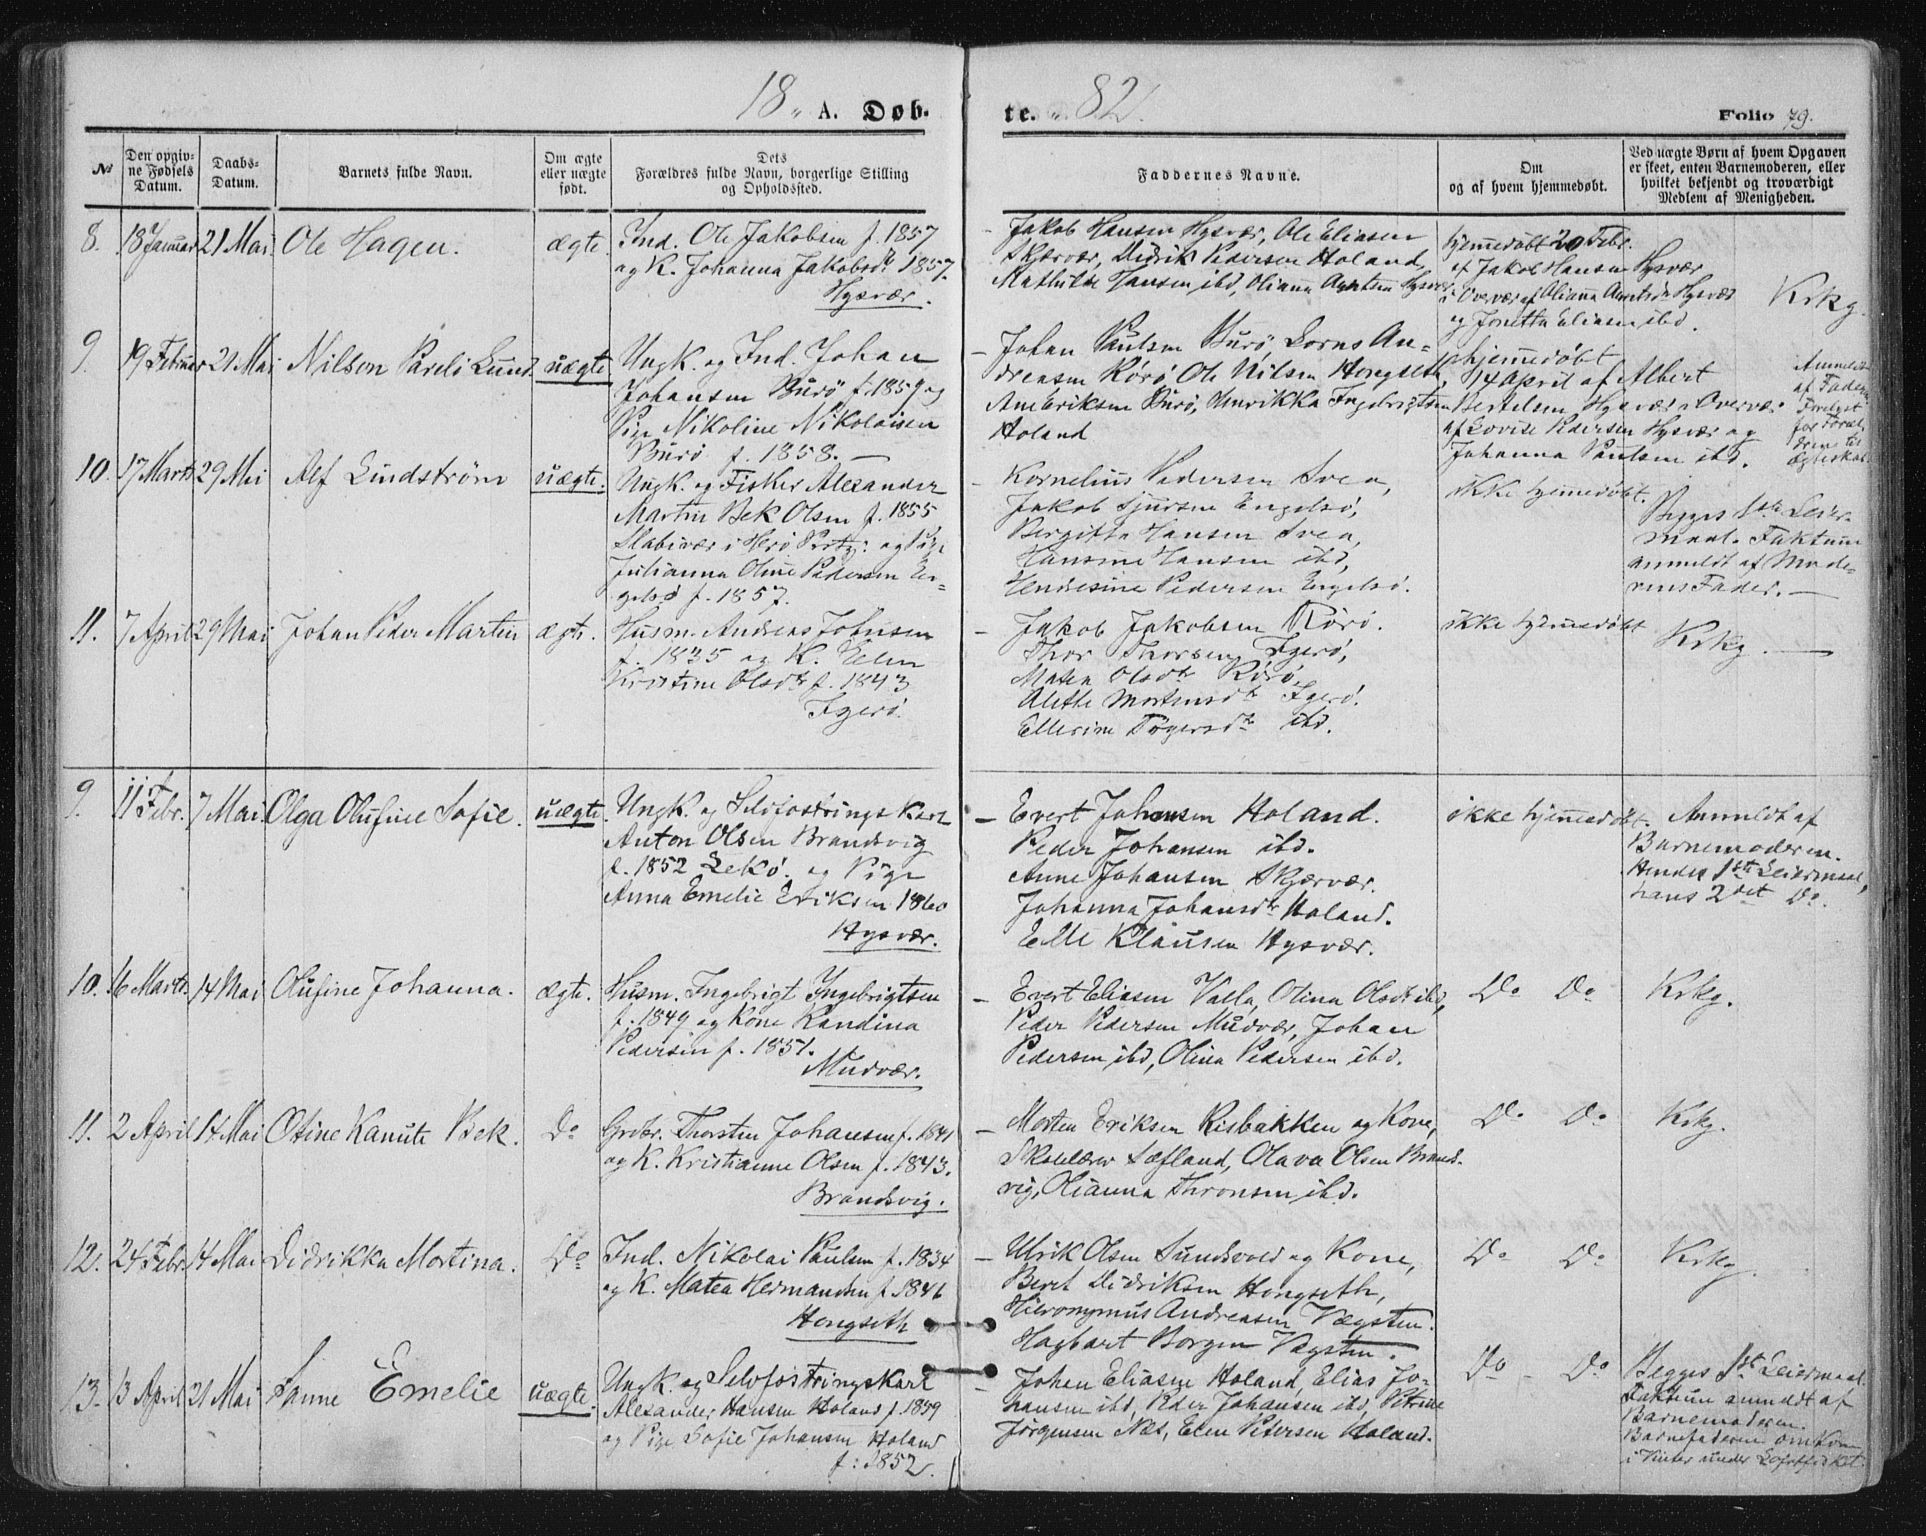 18 " A. Døb-
te. " 82.
Folio 79.
№
Den opgiv-
ne Fødsels
Datum.
Daabs-
Datum.
Barnets fulde Navn.
Om ægte
eller uægte
født.
Dets
Forældres fulde Navn, borgerlige Stilling
og Opholdssted.
Faddernes Navne.
Om
og af hvem hjemmedøbt.
Ved uægte Børn af hvem Opgaven
er skeet, enten Barnemoderen, eller
hvilket bekjendt og troværdigt
Medlem af Menigheden.
8. 18 Januar 21 Mai Ole Hagen. ægte.
Ind. Ole Jakobsen f. 1857
og K. Johanna Jakobsdr 1857.
Hysvær.
- Jakob Hansen Hysvær, Ole Eliasen
Skjærvær, Didrik Pedersen Holand,
Mathilde Hansen ibd, Oliana Arntsen Hysvær
hjemmedøbt 20 Febr.
af Jakob Hansen Hysvær
i Overvær af Olianna Arntsdr Hysvær
og Jonetta Eliasen ibd.
Krkg.
9. 19 Februar 21 Mai Nilson Pareli Lund uægte
Ungk. og Ind. Johan
Johansen Burø f. 1859 og
Pige Nikoline Nikolaisen
Burø f. 1858. —
- Johan Paulsen Burø, Lorns An-
dreasen Rørø Ole Nilsen Hongseth,
Ane Eriksen Burø, Henrikka Ingebrigtsen
Holand
hjemmedøbt
14 April af Albert
Bertelsen Hysvær i Overvær
af Lovise Pedersen Hysvær og
Johanna Paulsen ibd.
Anmeldt
af Faderen
Forelyst
for Foræl-
drene til
Ægteskab.
10. 17 Marts 29 Mai Alf Lindstrøm uægte.
Ungk. og Fisker Alexander
Martin Bek Olsen f. 1855
Slabivær i Herø Prstg: og Pige
Julianna Oline Pedersen En-
gelsø f. 1857.
- Kornelius Pedersen Svea,
Jakob Sjursen Engelsø,
Bergitta Hansen Svea,
Hansine Hansen ibd,
Hendresine Pedersen Engelsø.
ikke hjemmedøbt.
Begges 1ste Leier-
maal. Faktum
anmeldt af Mode-
rens Fader. —
11. 7 April 29 Mai Johan Peder Martin ægte.
Husm. Andreas Johnsen
f. 1835 og K. Elen
Kristine Olsdtr f. 1843
Igerø.
- Jakob Jakobsen Rørø.
Thor Thorsen Igerø,
Matea Olsdtr Rørø,
Alette Mortensdtr Igerø.
Ellerine Tøgersdtr ibd.
ikke hjemmedøbt
Krkg. —
9. 11 Febr. 7 Mai Olga Olufine Sofie. uægte.
Ungk. og Selvfostringskarl
Anton Olsen Brandsvig
f. 1852 Lekø. og Pige
Anna Emelie Eriksen 1860
Hysvær.
- Evert Johansen Holand.
Peder Johansen ibd.
Anne Johansen Skjærvær.
Johanna Johansdtr Holand.
Elle Klausen Hysvær.
ikke hjemmedøbt.
Anmeldt af
Barnemoderen.
Hendes 1ste Leiermaal,
hans 2det Do.
10. 16 Marts. 14 Mai Olufine Johanna. ægte.
Husm. Ingebrigt Ingebrigtsen
f. 1849 og Kone Randina
Pedersen f. 1851.
Mudvær.
- Evert Eliasen Valla, Olina Olsdtr ibd,
Peder Pedersen Mudvær, Johan
Pedersen ibd, Olina Pedersen ibd.
Do Do
Krkg.
11. 2 April 14 Mai Otine Kanute Bek. Do
Grdbr. Thorsten Johansen f. 1841
og K. Kristianne Olsen f. 1843.
Brandsvig.
- Morten Eriksen Risbakken og Kone,
Skolelærer Sæfland, Olava Olsen Brands-
vig, Olianna Thronsen ibd.
Do Do
Krkg.
12. 24 Febr. 14 Mai Didrikka Mortina. Do
Ind. Nikolai Paulsen f. 1834
og K. Matea Hermansen f. 1846
Hongseth
- Ulrik Olsen Sundsvold og Kone,
Beret Didriksen Hongseth,
Hieronymus Andreasen Vægsten.
Hagbart Borgen Vægsten.
Do Do
Krkg.
13. 13 April 21 Mai Sanne Emelie uægte.
Ungk. og Selvfostringskarl
Alexander Hansen Holand f. 1859
og Pige Sofie Johansen Holand
f: 1852.
- Johan Eliasen Holand, Elias Jo-
hansen ibd, Peder Johansen ibd, Petrine
Jørgensen Næs, Elen Petersen Holand.
Do - Do
Begges 1ste Leiermaal
Faktum anmeldt af
Barnemoderen.
Barnefaderen omkom
i Vinter under Lofotfisket.